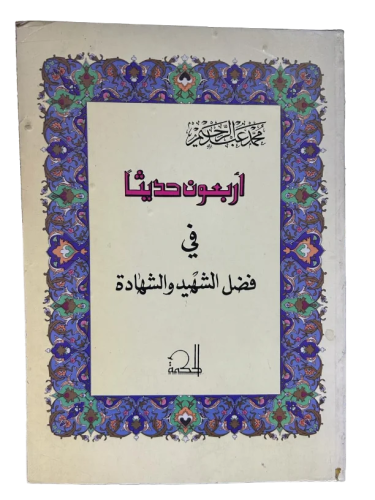 محمد عبد الرحيم
أربعون حديثا
في
فضل الشهيد والشهادة
الحكمة